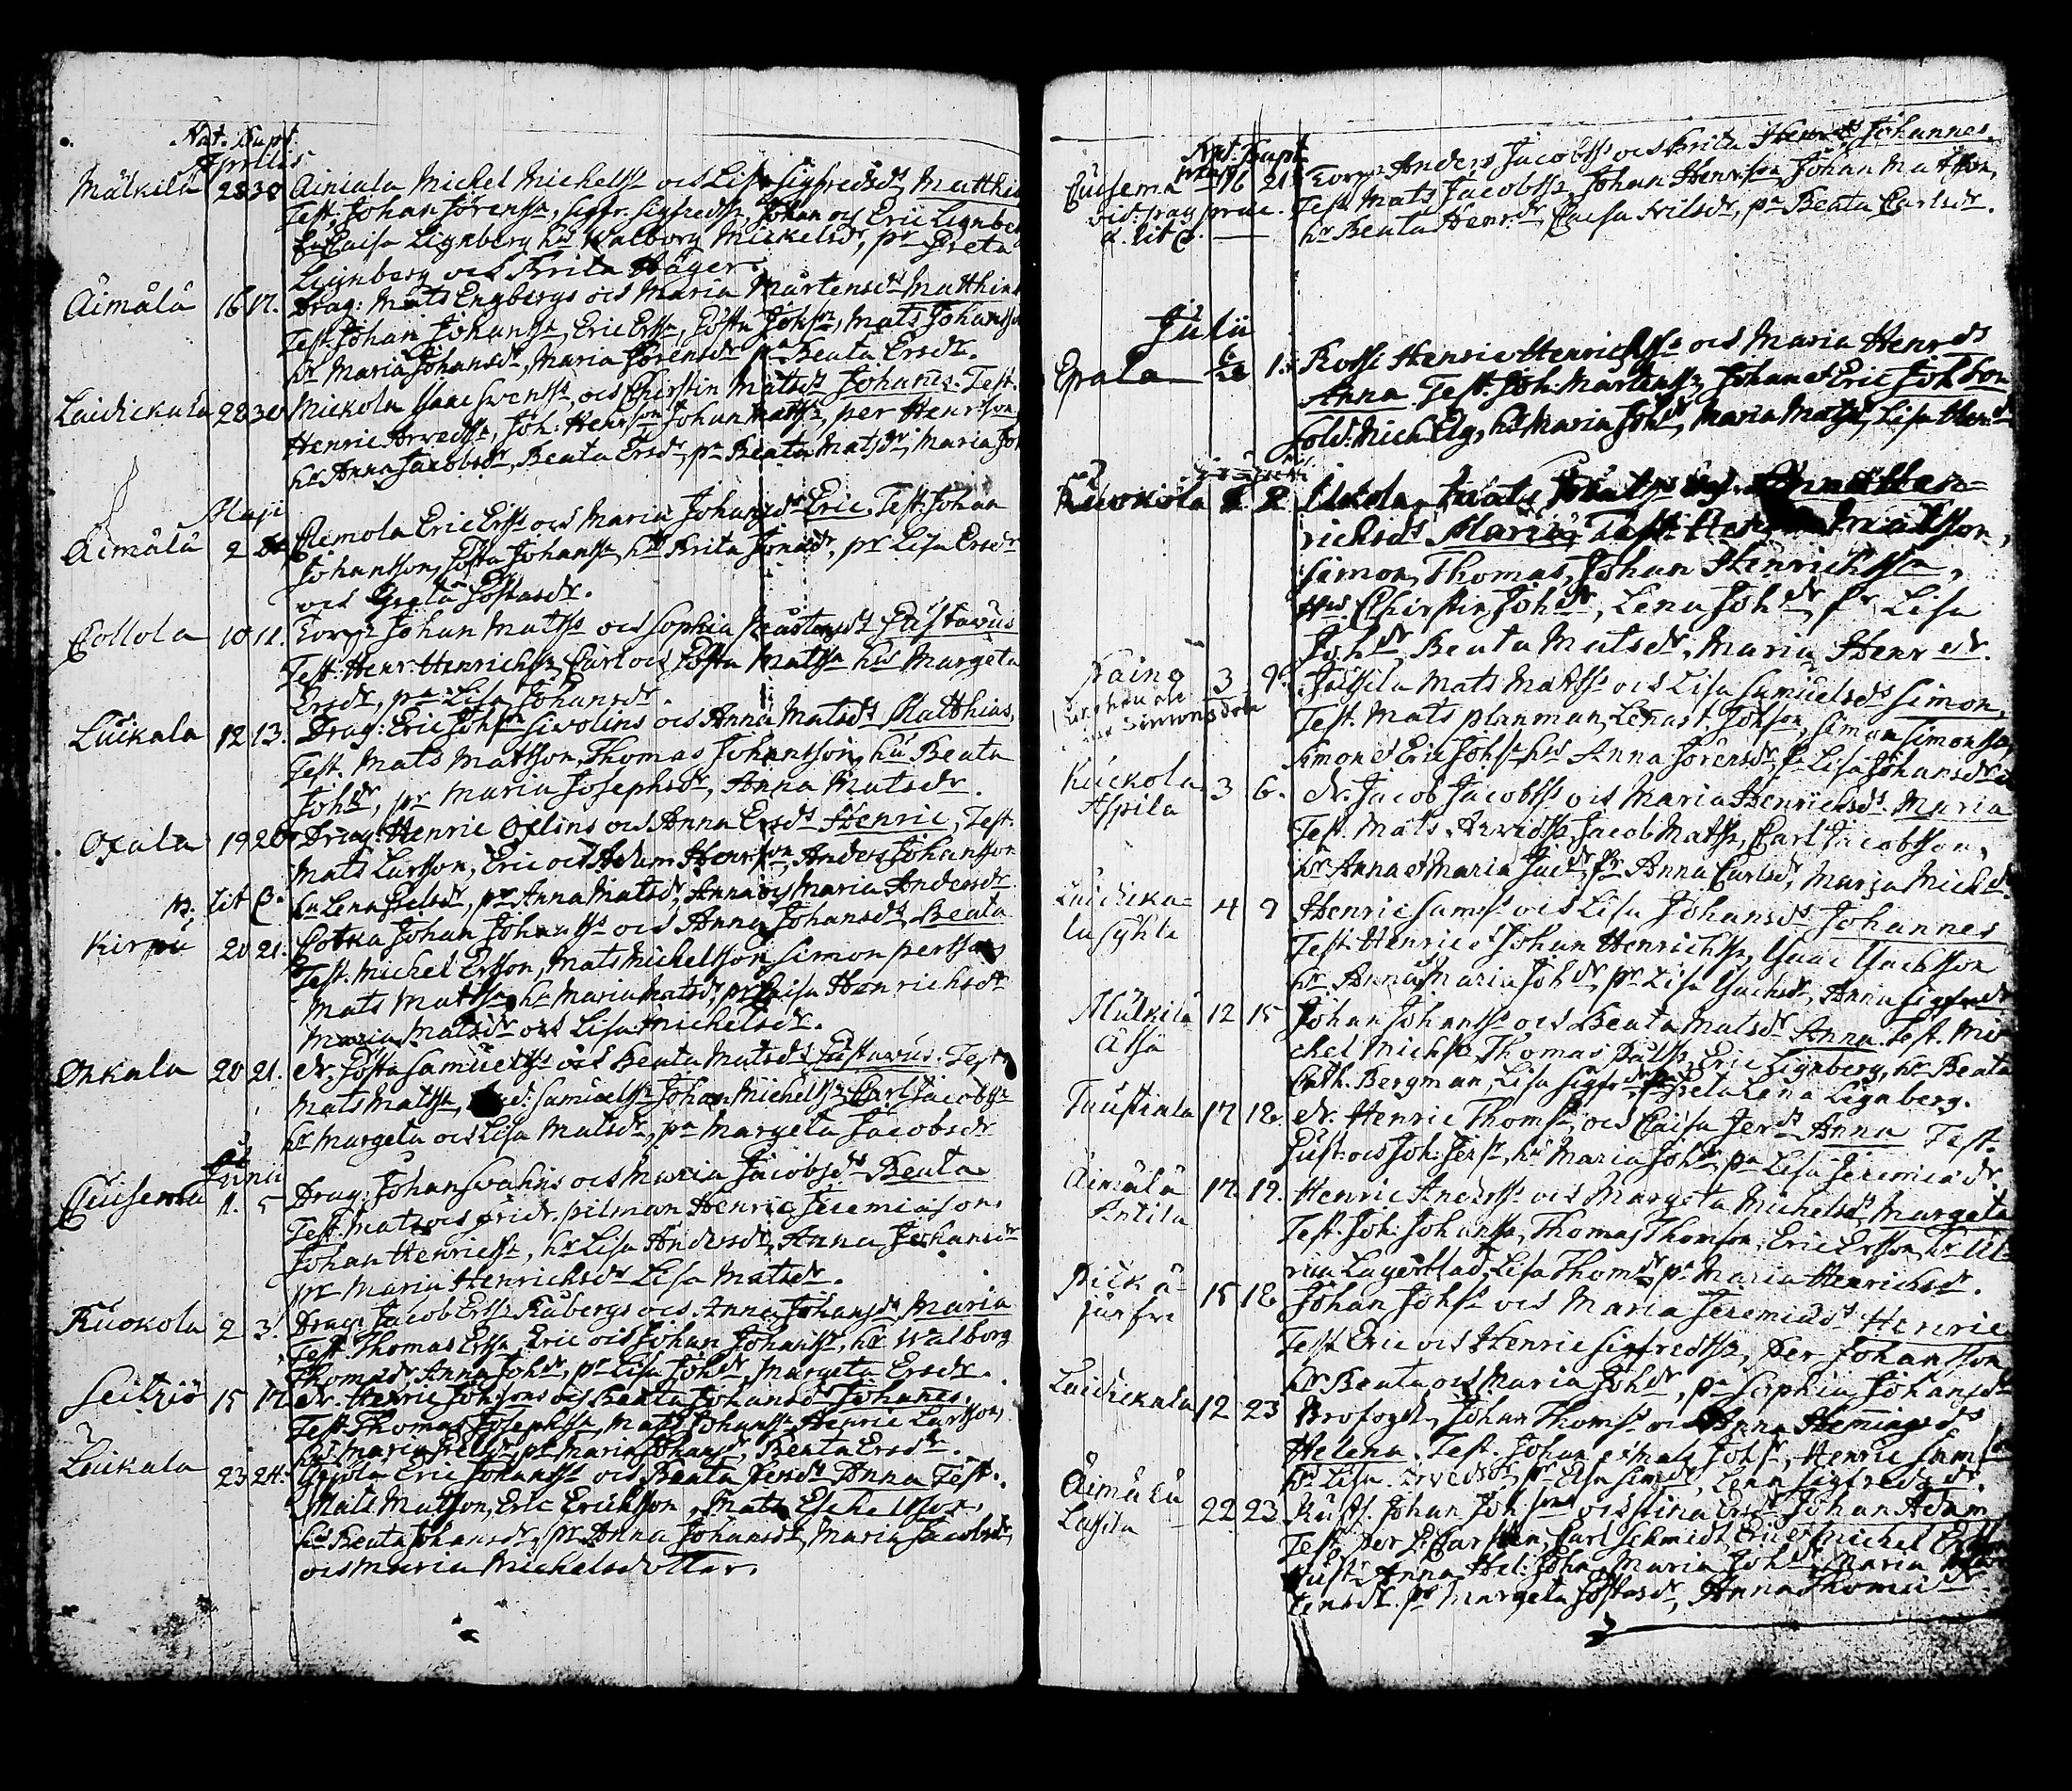 Nat. Bapt.
Aprilis
Mälkilä 28 30 Äimala Michel Michelss. och Lisa Sigfredsdr Matthias
Test. Johan Jörenss., Sigfr. Sigfredss., Johan och Eric Lignberg
Caisa Lignberg hu Walborg Mickelsdr, pr Greta
Lignberg och Brita Häger.
Äimälä 16 17. Drag: Mats Engbergs och Maria Mårtensdr Matthias
Test. Johan Johanss., Eric Erss., Gösta Johss., Mats Johansson
hr Maria Johansdr, Maria Jörensdr pr Beata Ersdr.
Laidickala 28 30 Nickola Isaac Swenss., och Chirstin Matsdr Johanes. Test.
Henric Arwedss., Joh: Henrsson Johan Matss., per Henrsson
hr Anna Jacobsdr, Beata Ersdr, pr Beata Matsdr, Maria Joh
Maji
Äimälä 2 Eemola Eric Erss. och Maria Johansdr Eric. Test. Johan
Johansson, Gösta Johanss., hr Brita Jonadr, pr Lisa Ersdr
och Greta Göstasdr.
Collola 10 11. Corpr Johan Matss. och Sophia Gustafsdr Gustavus
Test. Henr. Henrichss. Carl och Gösta Matss. hr Margeta
Ersdr, pr Lisa Johansdr.
Luikala 12 13. Drag: Eric Johss. Siwolins och Anna Matsdr Matthias,
Test. Mats Mattson, Thomas Johansson, hu Beata
Johdr, pr Maria Josephsdr, Anna Matsdr.
Oxala 19 20 Drag: Henric Oxlins och Anna Ersdr Henric, Test.
Mats Larsson, Eric och Adam Henrsson, Anders Johansson
lit C. hu Lena Erlsdr, pr Anna Matsdr, Anna och Maria Andersdr
Kirpu 20 21. Cotka Johan Johanss. och Anna Johansdr Beata
Test. Michel Ersson, Mats Michelsson Simon persson
Mats Matss. hr Maria Matsdr, pr Caisa Henrichsdr
Maria Matsdr och Lisa Michelsdr.
Onkala 20 21. dr, Gösta Samuelss. och Beata Matsdr Gustavus. Test.
Mats Matss., Samuelss. Johan Michelss. Carl Jacobss.
hr Margeta och Lisa Matsdr, pr Margeta Jacobsdr
Junii
Cuisema 1. 5 Drag: Johan Swahns och Maria Jacobsdr Beata
Test. Mats och Fridr. Pilman Henric Jeremiason
Johan Henricss., hr Lisa Andersdr, Anna Johansdr
pr Maria Henrichsdr Lisa Matsdr.
Kuokola 2 3. Drag: Jacob Erss. Kubergs och Anna Johansdr Maria
Test. Thomas Erss. Eric och Johan Johanss., hr Walborg
Thomasdr, Anna Johdr, pr Lisa Johdr, Margeta Ersdr.
Seitziö 15 17 dr Henric Johssons och Beata Johansdr Johanes.
Test. Thomas Josephss., Mats Johanss. Henric Larsson,
hr Maria Erlsdr, pr Maria Johansdr, Beata Ersdr.
Luikala 23 24. Eric Johanss. och Beata Persdr Anna Test.
Mats Matson, Eric Erickson, Mats Eschelsson,
hr Beata Johansdr, pr Anna Johansdr, Maria Jacobsdr,
och Maria Michelsdotter.
Nat. Bapt.
Cuisema 16 21. Corpr Anders Jacobss. och Brita Henrsdr Johannes.
vid. pag. prae. Test. Mats Jacobss., Johan Henrsson Johan Matsson,
a. lit C. hr Beata Henrdr, Caisa Nilsdr, pr Beata Carlsdr.
Julii
Epala 1. Rossi Henric Henrichss. och Maria Henrdr
Anna. Test. Joh: Mårtenss., Johan et Eric Johsson
Sold: Mich. Elg, hr Maria Johdr, Maria Matsdr, Lisa Henrdr
Kuokola 1 2 Uckola, Mats Matss. och Anna Hen-
richsdr Maria, Test. Matsson,
Simon, Thomas, Johan Henrichss.,
hu: Chirstin Johdr, Lena Johdr, pr Lisa
Johdr, Beata Matsdr, Maria Henrdr.
Raino 3 9. Juttila Mats Matss. och Lisa Samuelsdr Simon,
Test. Mats planman, Lenart Johson, Simon Simonsson,
Simon et Eric Johss. hr Anna Jörensdr, pr Lisa Johansdr
Kuckola 3 6. dr. Jacob Jacobss. och Maria Henrichsdr Maria
Aspila Test. Mats Arvidss., Jacob Matss., Carl Jacobsson,
hr Anna et Maria Jacdr, pr Anna Carlsdr, Maria Michdr
Laidicka- 4 9 Henric Samss. och Lisa Johansdr Johannes
la Test. Henric et Johan Henrichss., Isaac Isachsson
hr Anna Maria Johdr, pr Lisa Isachsdr, Anna Sigfredr
Mälkilä 12 15 Johan Johanss. och Beata Matsdr Anna. Test. Mi-
chel Michss., Thomas Pålss., Eric Lignberg, hr Beata
Cath. Bergman, Lisa Sigfrdr, pr Greta Lena Lignberg.
Tuustiala 17 18. dr. Henric Thomss., och Caisa Jerdr Anna Test.
Gust. och Joh: Jerss., hr Maria Johdr, pr Lisa Jeremiædr.
Äimälä 17. 19. Henric Anderss. och Margeta Michelsdr Margeta
Antila Test. Joh: Johanss., Thomas Thomson, Eric Ersson, hr Ul-
rica Lagerblad, Lisa Thomdr, pr Maria Henrichsdr.
Pickä- 15 18 Johan Johss. och Maria Jeremiædr Henric
jürfvi Test. Eric och Henric Sigfredss., Per Johansson,
hr Beata och Maria Johdr, pr Sophia Johansdr
Laidickala 12 23 Brofogd. Johan Thomss. och Anna Hemingsdr
Helena. Test. Johan et Mats Johss., Henric Samss.
hr Lisa Arvedsdr, pr Elsa Simdr, Lena Sigfredsdr.
Äimälä 22 23 Rustf. Johan Johssons och Stina Ersdr Johan Adam
Lassila Test. Carl Schmidt, Eric et Michel Ersson
Anna Hel: Johan Maria Johdr, Maria
pr Margeta Göstasdr, Anna Thomædr